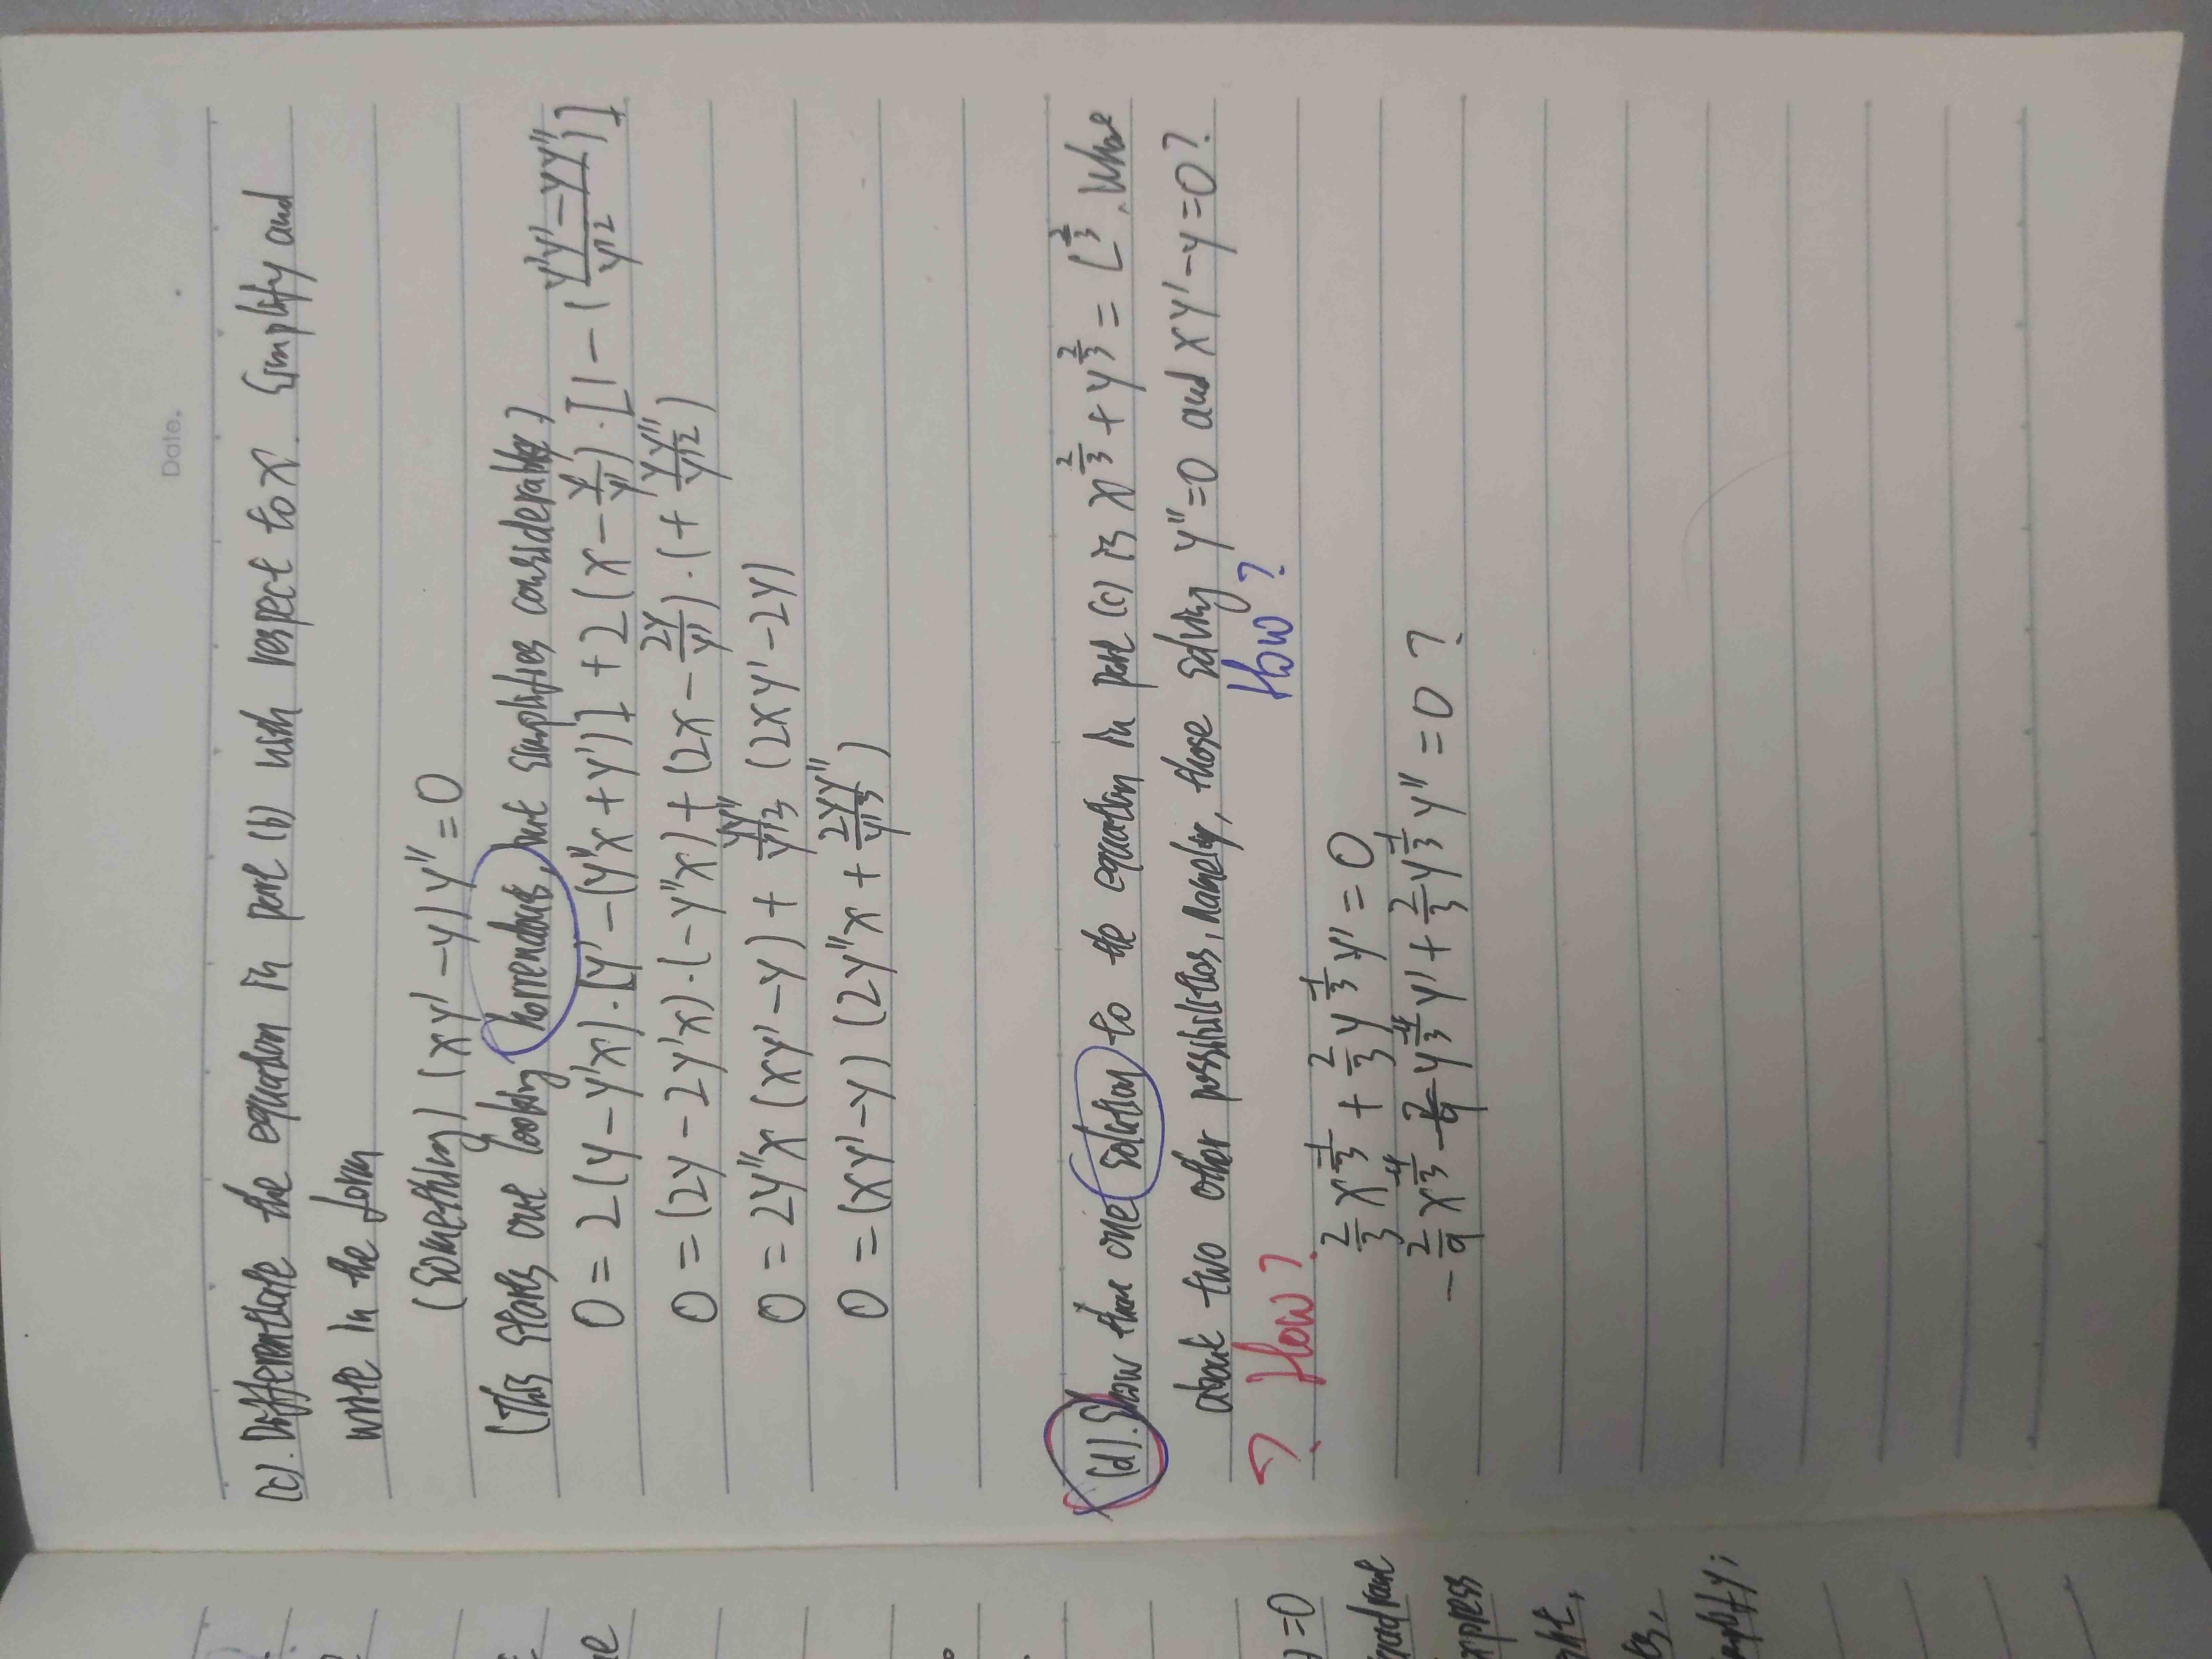 Date. .
(c). Differentiate the equation in part (b) with respect to x. Simplify and
write in the form
(something) (xy' - y) y'' = 0
(This starts out looking horrendous, but simplifies considerably)
0 = 2(y - y'x)·[y' - (y''x + y')] + 2(x - y/y')·[1 - (y'y' - yy''/y'^2)]
0 = (2y - 2y'x)·(-y''x) + (2x - 2y/y')·(+ yy''/y'^2)
0 = 2y''x(xy' - y) + yy''/y'^3 (2xy' - 2y)
0 = (xy' - y)(2y''x + 2yy''/y'^3)
(d). Show that one solution to the equation in part (c) is x^2/3 + y^2/3 = L^2/3. What
about two other possibilities, namely, those solving y'' = 0 and xy' - y = 0?
? How? How?
2/3 x^-1/3 + 2/3 y^-1/3 y' = 0
-2/9 x^-4/3 - 2/9 y^-4/3 y' + 2/3 y^-1/3 y'' = 0 ?
) = 0